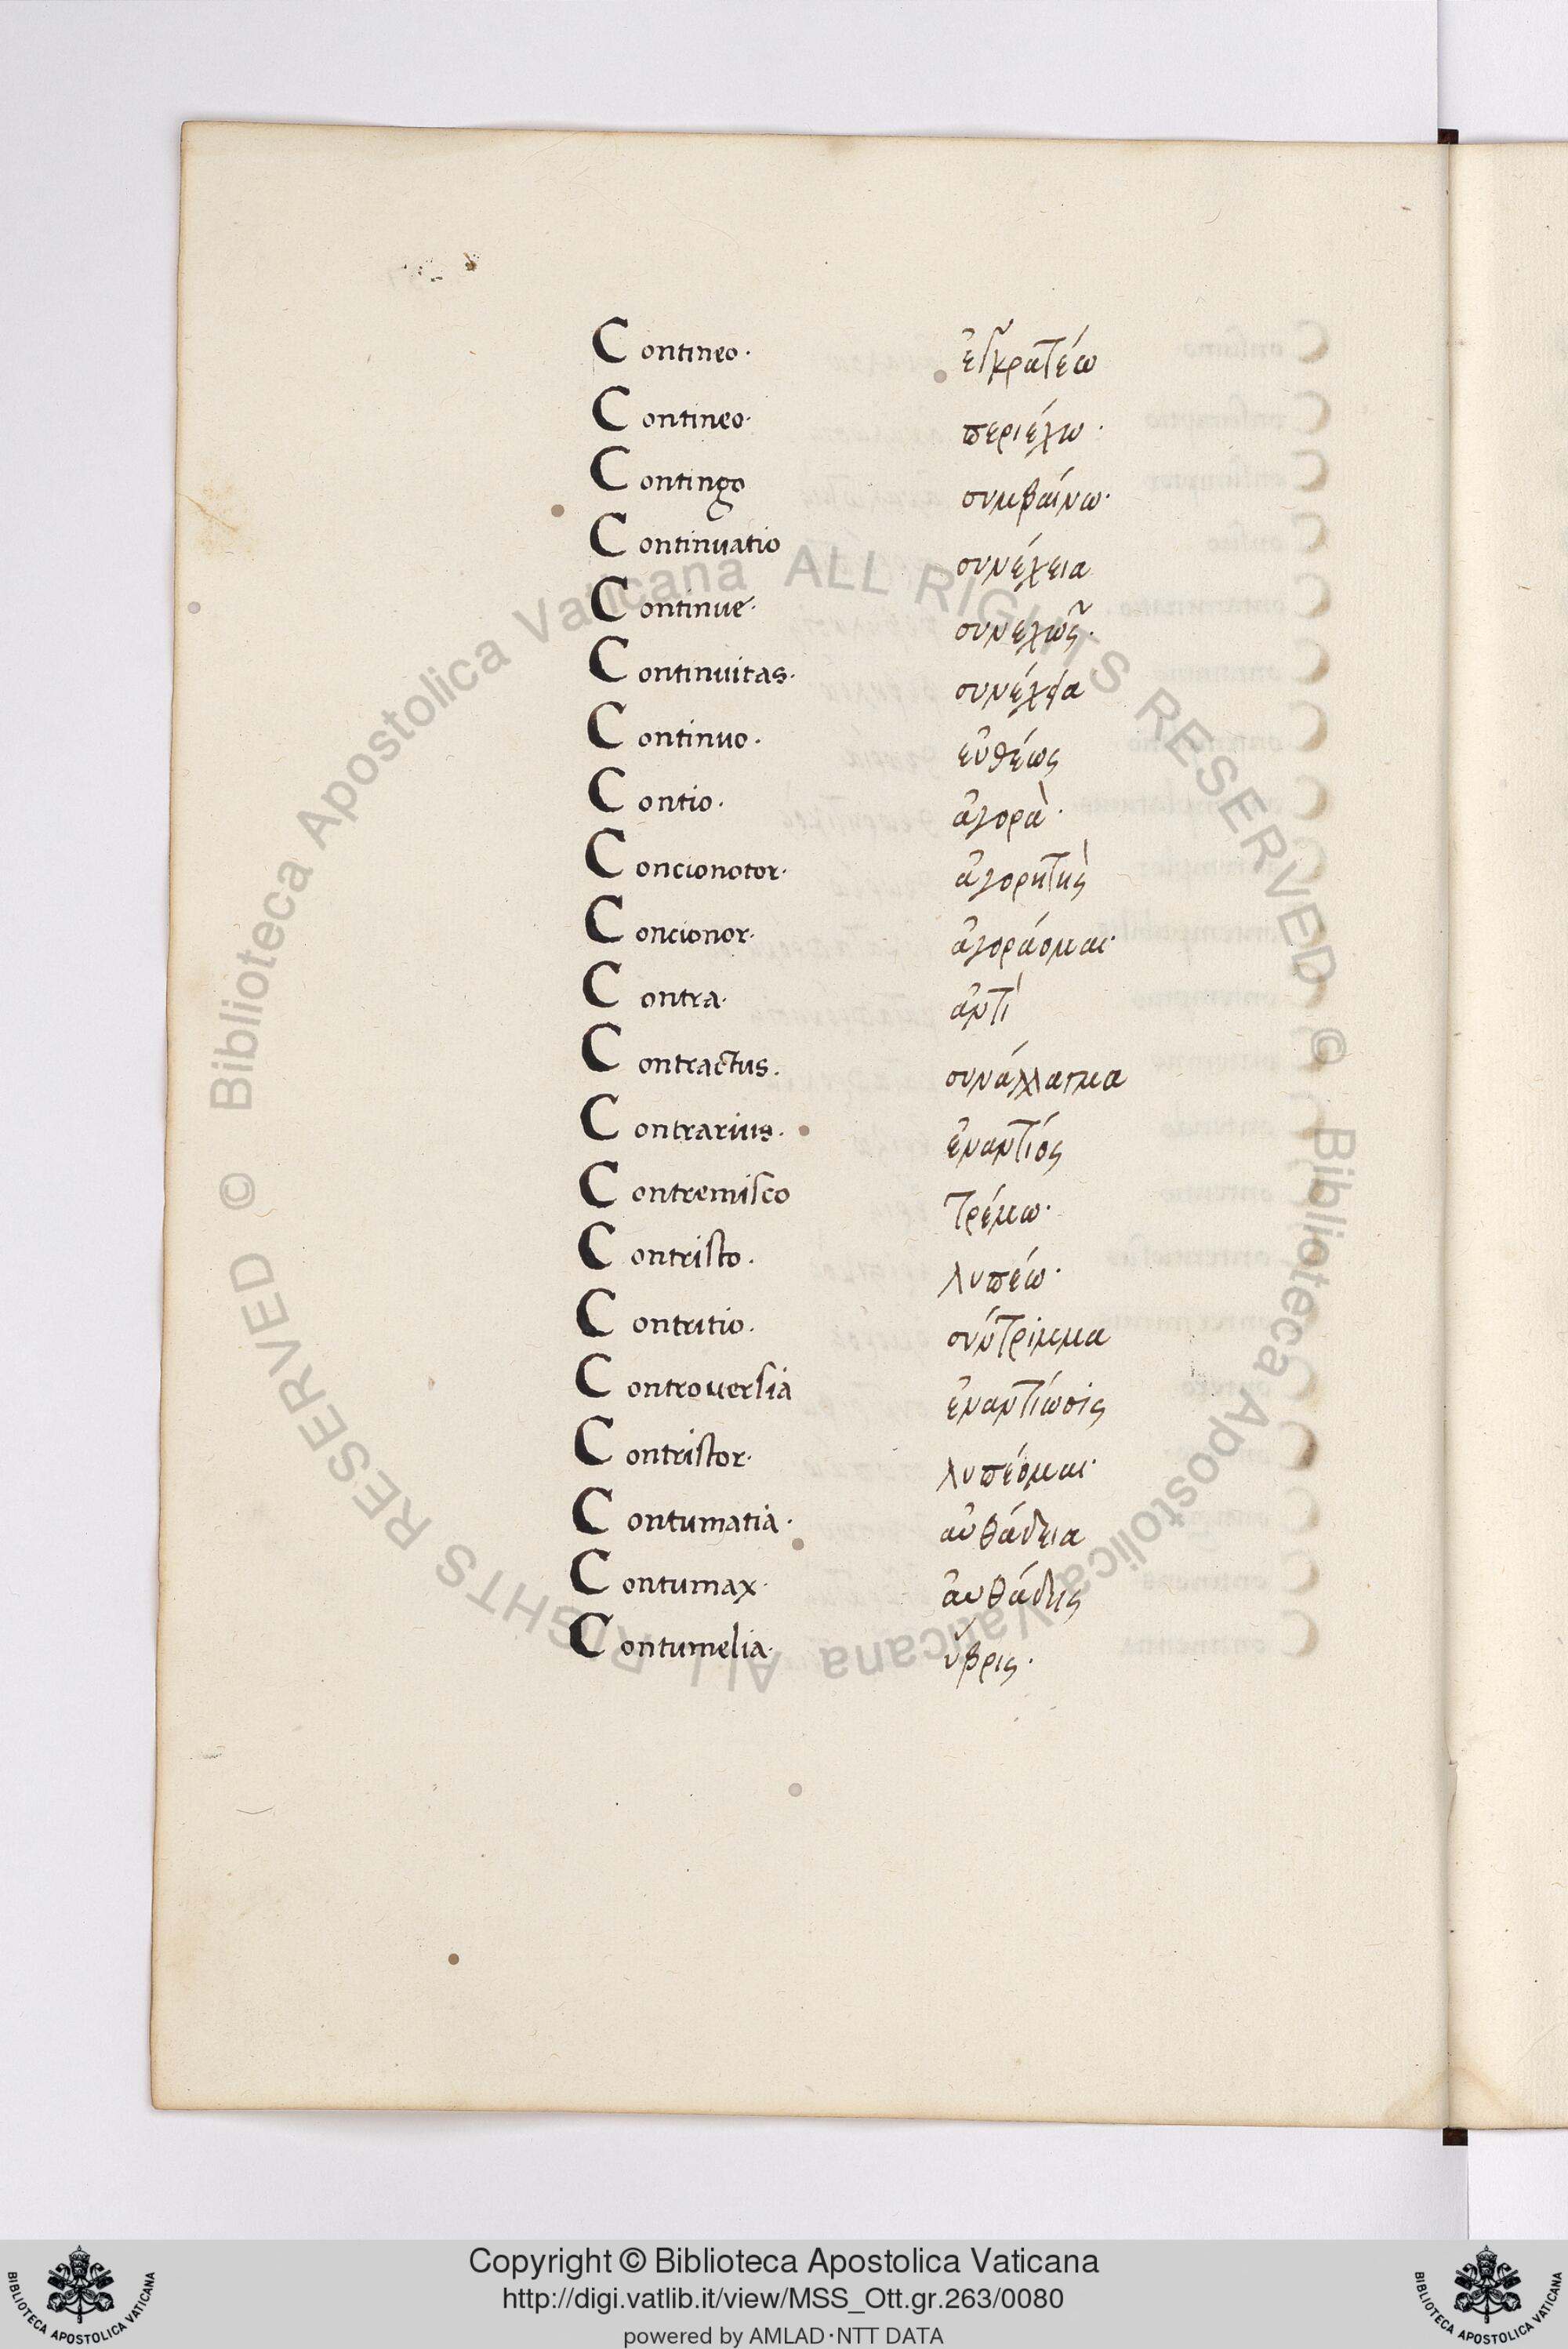 Contineo. ἐγκρατέω
Contineo. περιέχω.
Contingo συμβαίνω.
Continuatio συνέχεια
Continue. συνεχῶς.
Continuitas. συνέχεια
Continuo. εὐθέως
Contio. ἀγορὰ.
Concionotor. ἀγορητὴς
Concionor. ἀγοράομαι.
Contra. ἀντὶ
Contractus. συνάλλαγμα
Contrarius. ἐναντίος
Contremisco τρέμω.
Contristo. λυπέω.
Contritio. σύντριμμα
Controuersia ἐναντίωσις
Contristor. λυπέομαι.
Contumatia. αὐθάδεια
Contumax. αὐθάδης
Contumelia. ὕβρις.
© Biblioteca Apostolica Vaticana ALL RIGHTS RESERVED
© Biblioteca Apostolica Vaticana ALL RIGHTS RESERVED
Copyright © Biblioteca Apostolica Vaticana
http://digi.vatlib.it/view/MSS_Ott.gr.263/0080
powered by AMLAD·NTT DATA
BIBLIOTECA APOSTOLICA VATICANA
BIBLIOTECA APOSTOLICA VATICANA